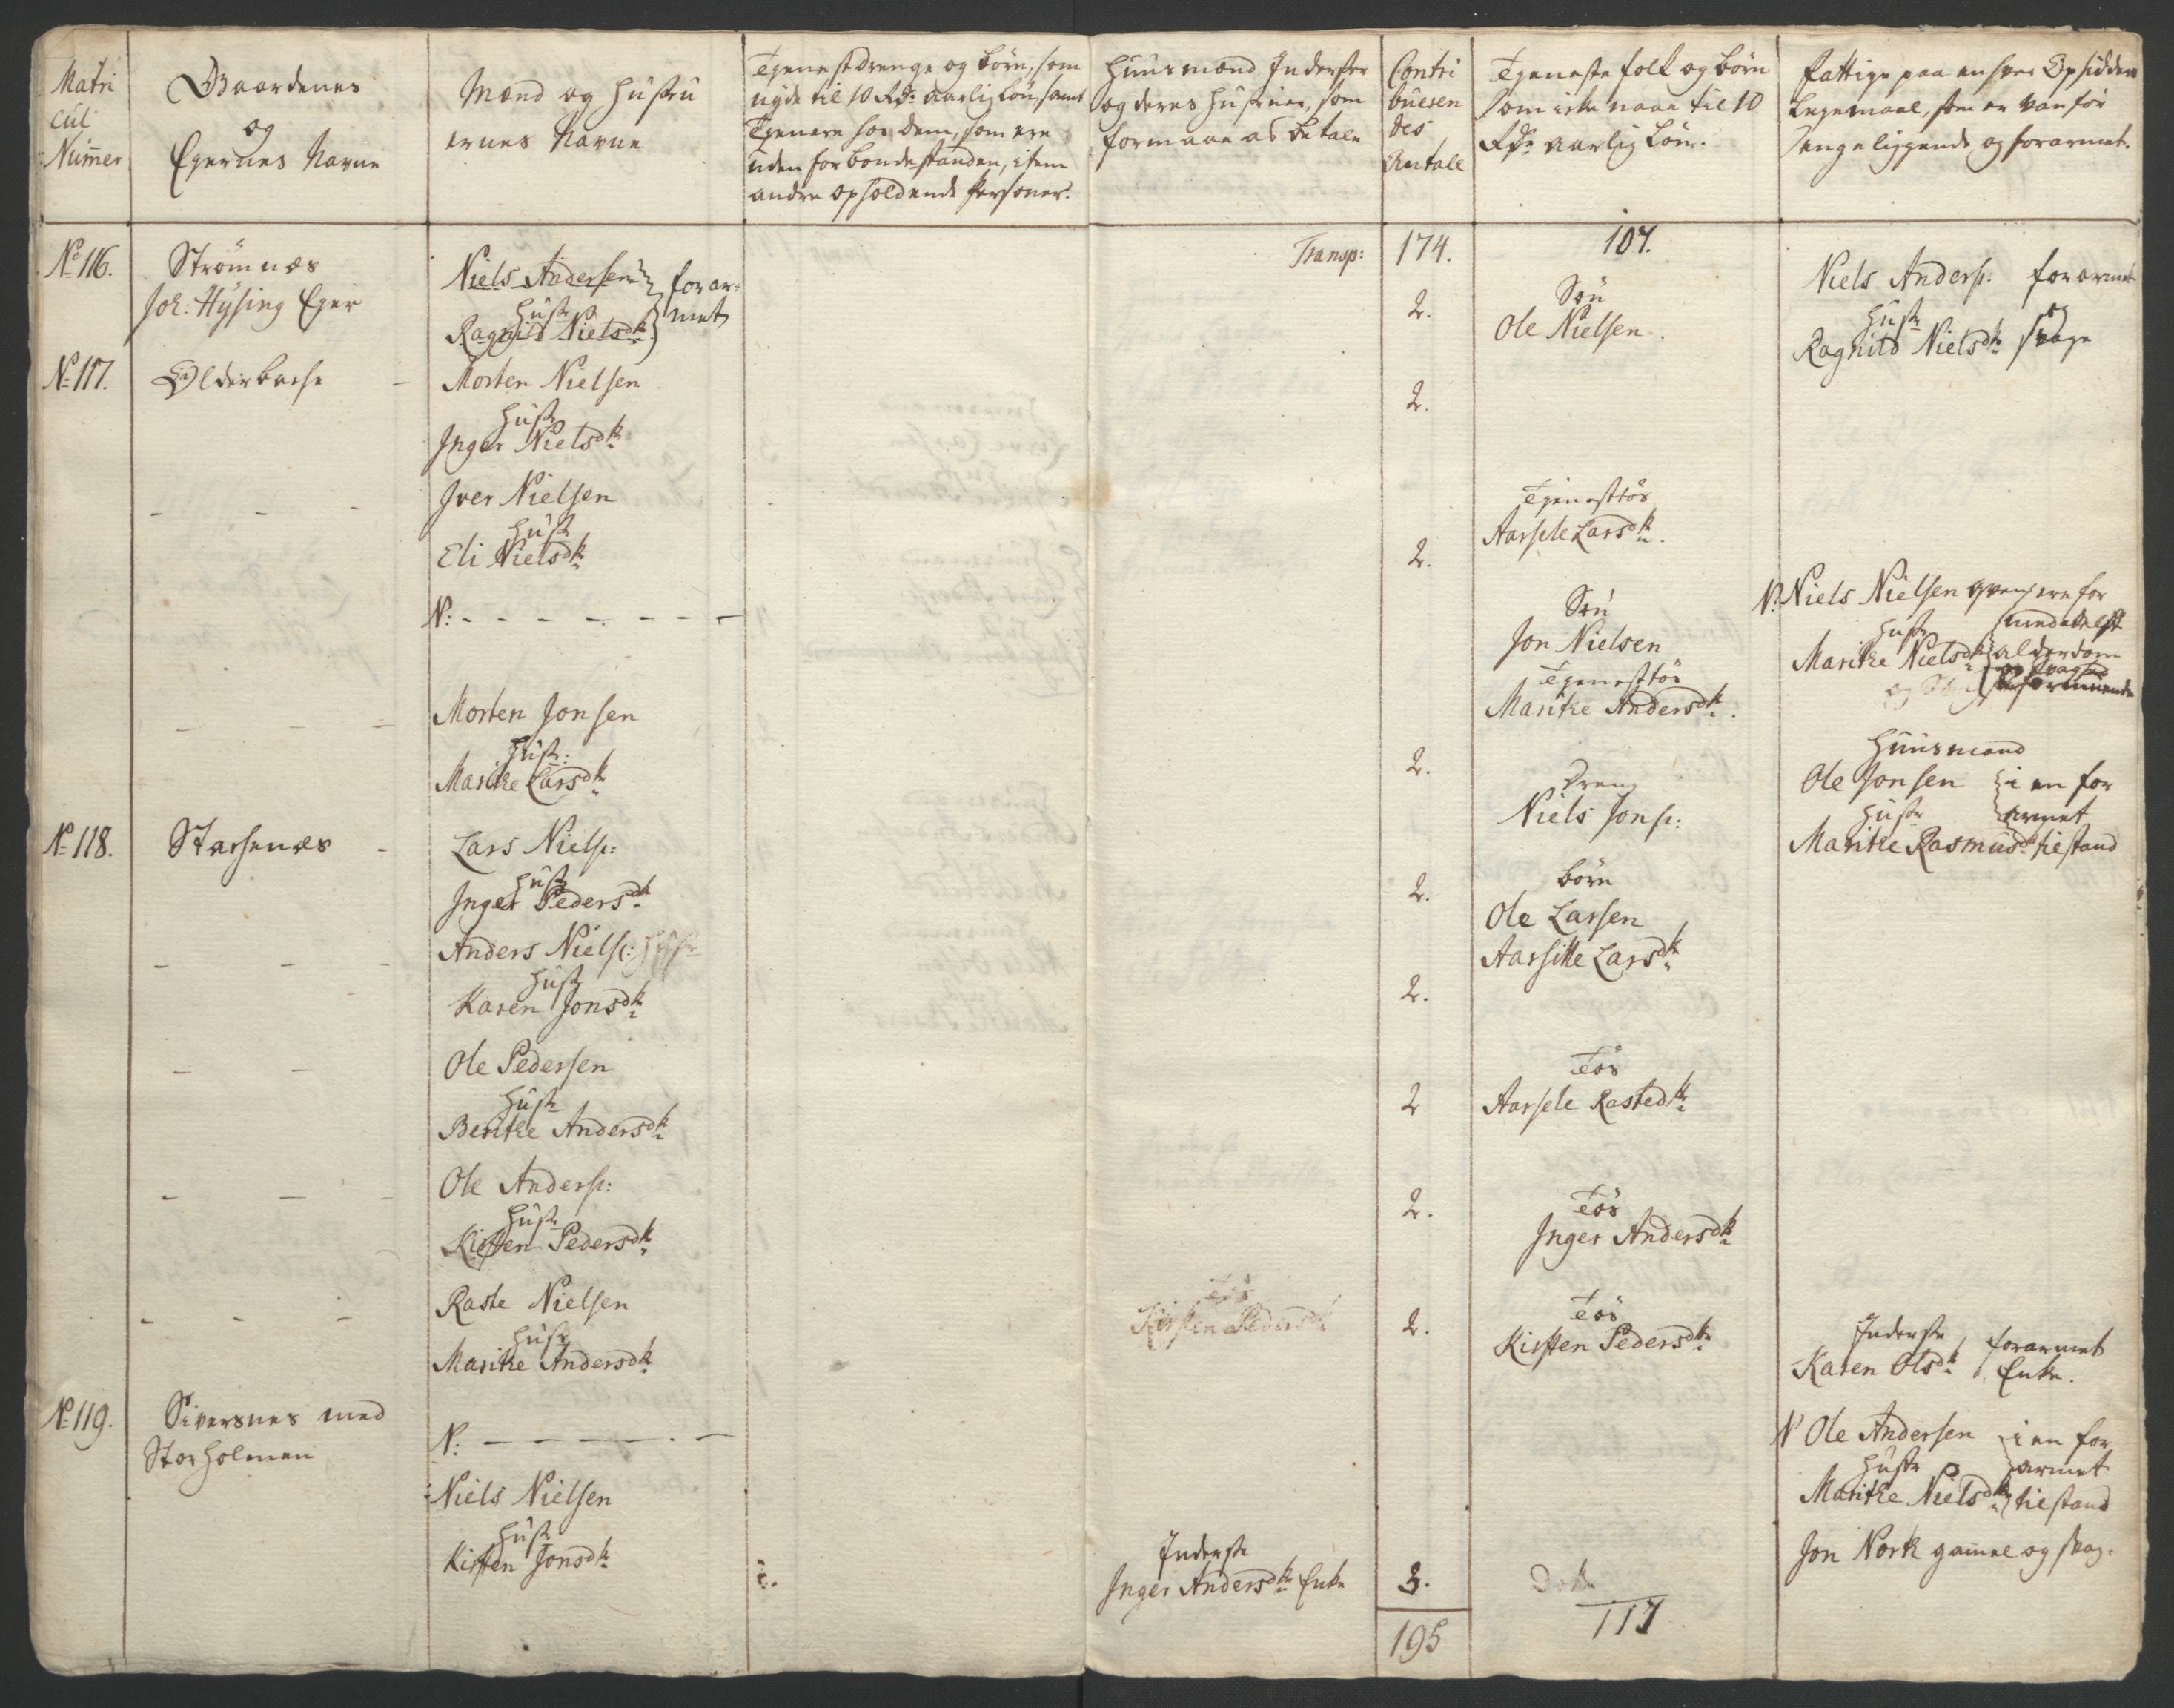 Matri
cul
Numer
Gaardenes
og
Ejernes Navne
Mænd og Hustru
ernes Navne
Tjenestdrenge og børn, som
nyde til 10 Rdr aarlig Løn, samt
Tjenere hos dem, som ere
uden for bondestanden, item
andre opholdende Personer.
Huusmænd Inderster
og deres Hustruer, som
formaae at betale
Contri
bueren
des
Antall
Tjeneste folk og børn
som icke naae til 10
Rdr aarlig Løn.
Fattige paa en hver Opsidders
Leyemaal, som er vanfør
senge liggende og forarmet.
Transp: 174. 107.
No 116. Strömnæs
Joh: Hysing Ejer
Niels Andersen
Hustr
Ragnild Nielsdtr
forar-
met
2.
Søn
Ole Nielsen.
Niels Anders: forarmet
Hustr og
Ragnild Nielsdtr svage
No 117. Olderbache -
Morten Nielsen
Hustr
Inger Nielsdtr
2.
- - -
Iver Nielsen
Hustr
Eli Nielsdtr
2.
Tjenesttös
Aarsele Larsdtr.
N: - - - - - - -
Søn
Jon Nielsen
Tjenesttös
Maritze Andersdtr.
N: Niels Nielsen
Hustr
Maritze Nielsdtr
alderdom
- - -
Morten Jonsen
Hustr:
Maritze Larsdtr
2.
Dreng
Niels Jons:
Huusmand
Ole Jonsen i en for
Hustr armet
Maritze Rasmusdtr tilstand
No 118. Starsenæs -
Lars Niels:
Hustr
Inger Pedersdtr
2.
børn
Ole Larsen
Aarsille Larsdtr
- - -
Anders Niels:
Hustr
Karen Jonsdtr
2.
- -
Ole Pedersen
Hustr
Beritze Andersdtr
2
Tös
Aarsele Rastedtr
- - -
Ole Anders:
Hustr
Kirsten Pedersdtr
2.
Tös
Inger Andersdtr
- - -
Raste Nielsen
Hustr
Maritze Andersdtr
Tös
Kirsten Pedersdtr
2.
Tös
Kirsten Pedersdtr
Inderste
Karen Olsdtr
forarmet
Enke.
No 119. Siversnes med
Storholmen
N: - - - - - - -
N Ole Andersen i en for
Hustr armet
Maritze Nielsdtr tilstand
Niels Nielsen
Hustr
Kirsten Jonsdtr
Inderste
Inger Andersdtr Enke
3.
Jon Nork gamel og svag.
195
117